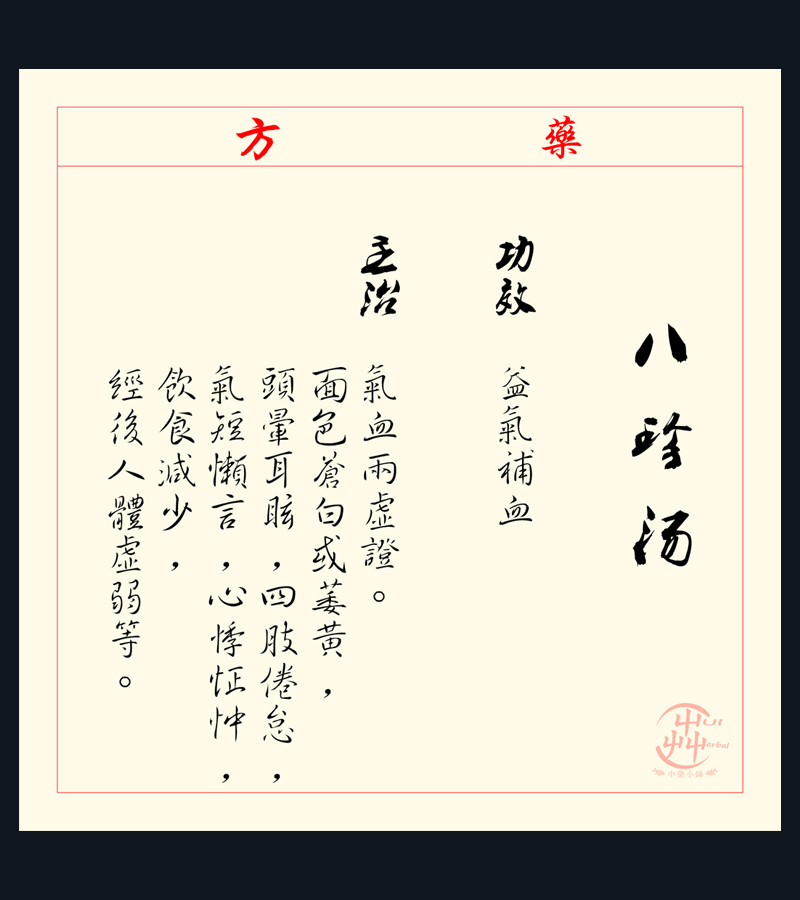 藥方
八珍湯
功效
益氣補血
主治
氣血兩虛證。
面色蒼白或萎黃，
頭暈耳眩，四肢倦怠，
氣短懶言，心悸怔忡，
飲食減少，
經後人體虛弱等。
HUI
Herbal
中藥小鋪